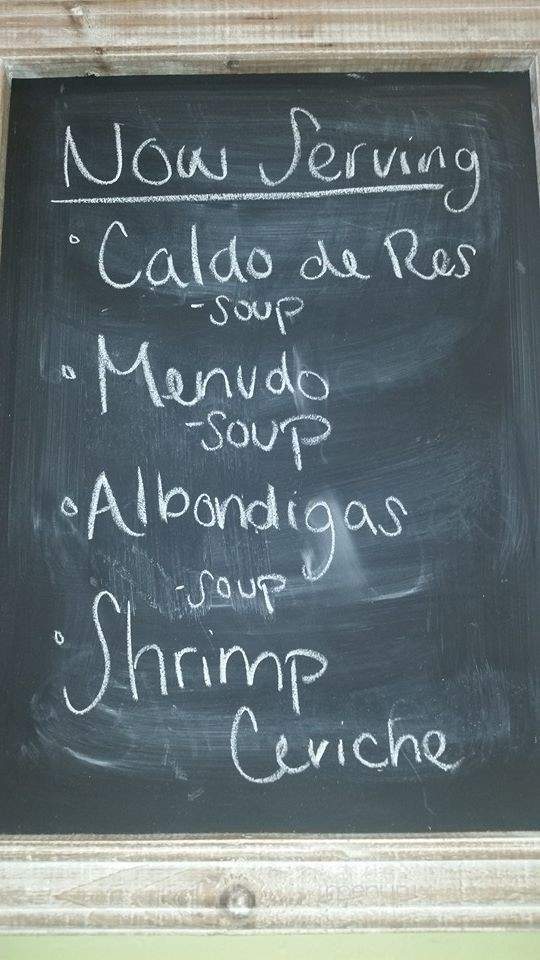 Now Serving
° Caldo de Res
-soup
° Menudo
-soup
° Albondigas
-soup
° Shrimp
Ceviche